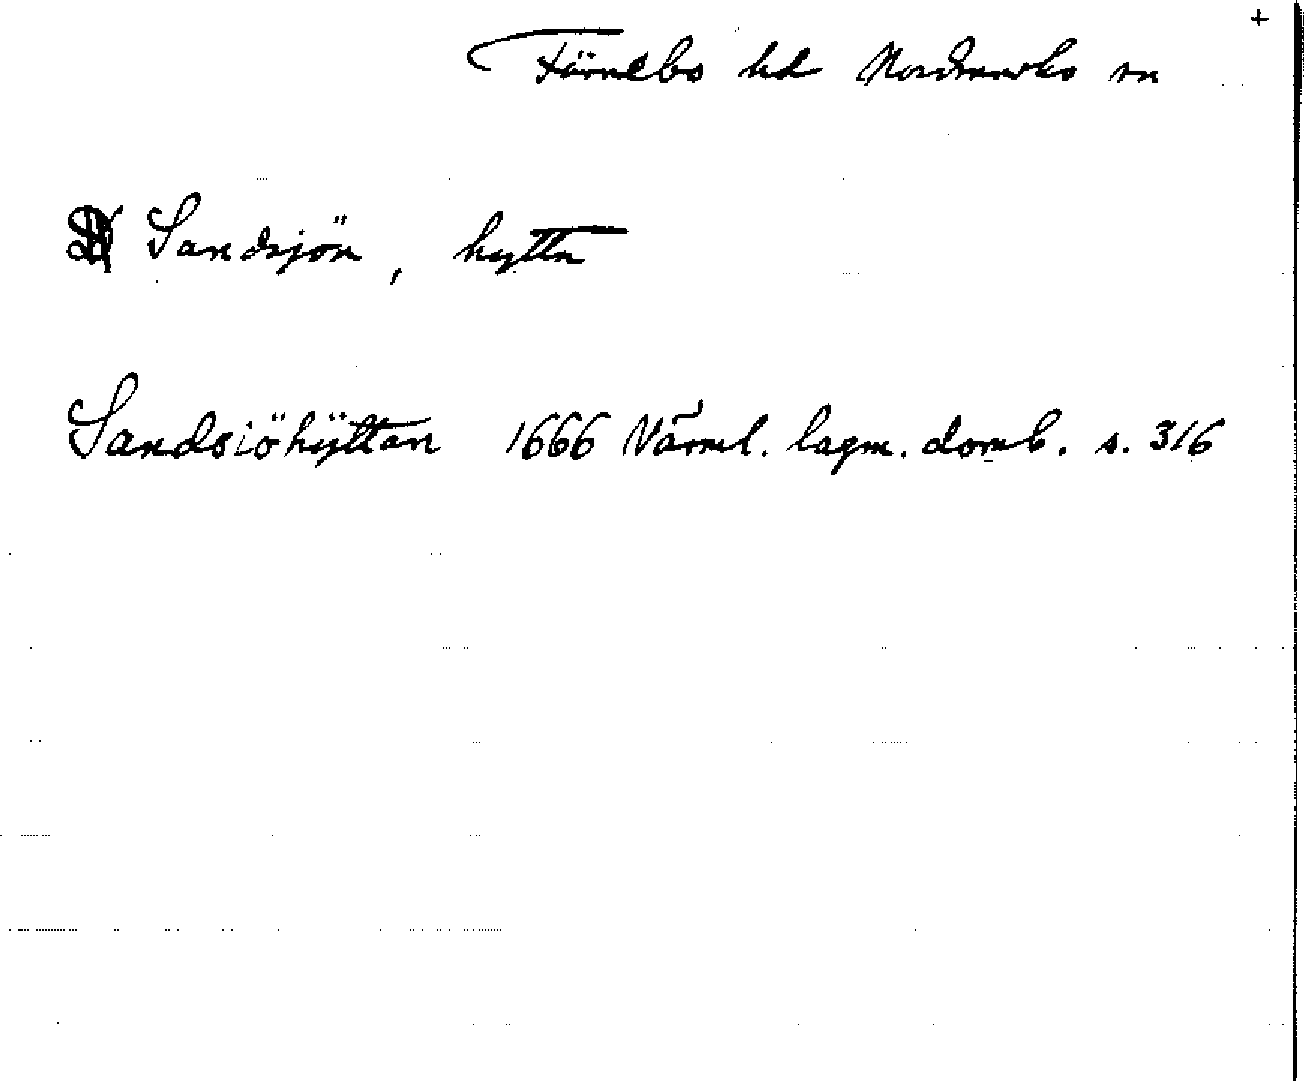 +
Färnebo hd Nordmarks sn
Sandsjön, hytta
Sandsiöhÿttan 1666 Värml. lagm. domb. s. 316